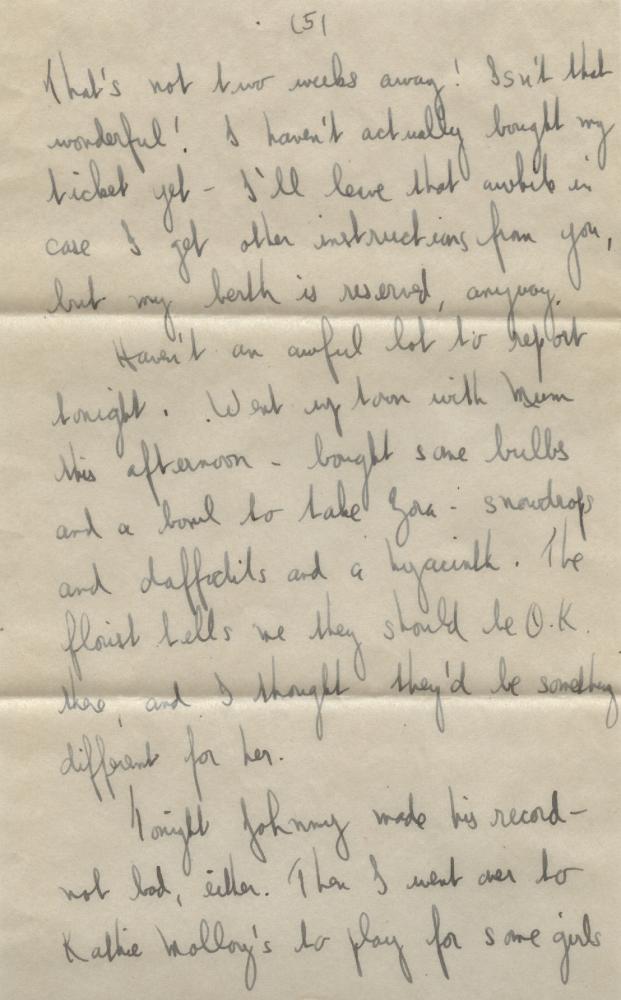 (5)
That's not two weeks away! Isn't that
wonderful! I haven't actually bought my
ticket yet - I'll leave that awhile in
case I get other instructions from you,
but my berth is reserved, anyway.
Haven't an awful lot to report
tonight. Went up town with Mum
this afternoon - bought some bulbs
and a bowl to take Zora - snowdrops
and daffodils and a hyacinth. The
florist tells me they should be O.K.
there, and I thought they'd be something
different for her.
Tonight Johnny made his record -
not bad, either. Then I went over to
Kathie Molloy's to play for some girls